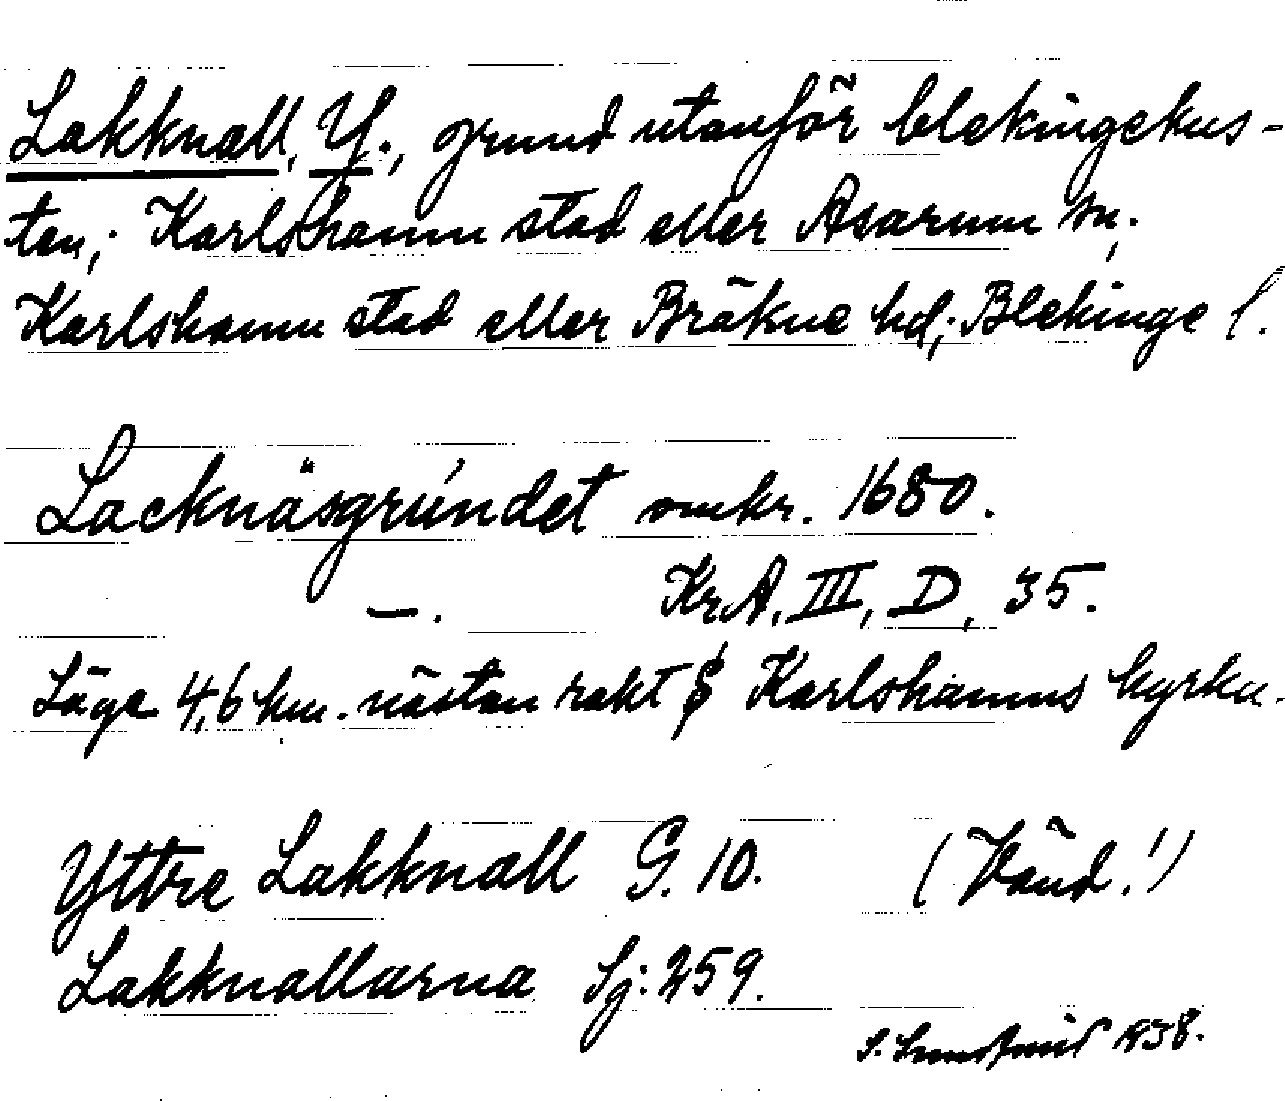 Lakknall, Y., grund utanför blekingekus-
ten; Karlshamn stad eller Asarum sn;
Karlshamn stad eller Bräkne hd; Blekinge l.
Lacknäsgrúndet omkr. 1680.
—. KrA, III, D, 35.
Läge 4,6 km. nästan rakt S Karlshamns kyrka.
Yttre Lakknall G. 10. (Vänd!)
Lakknallarna Sj: 259.
S. 1938.